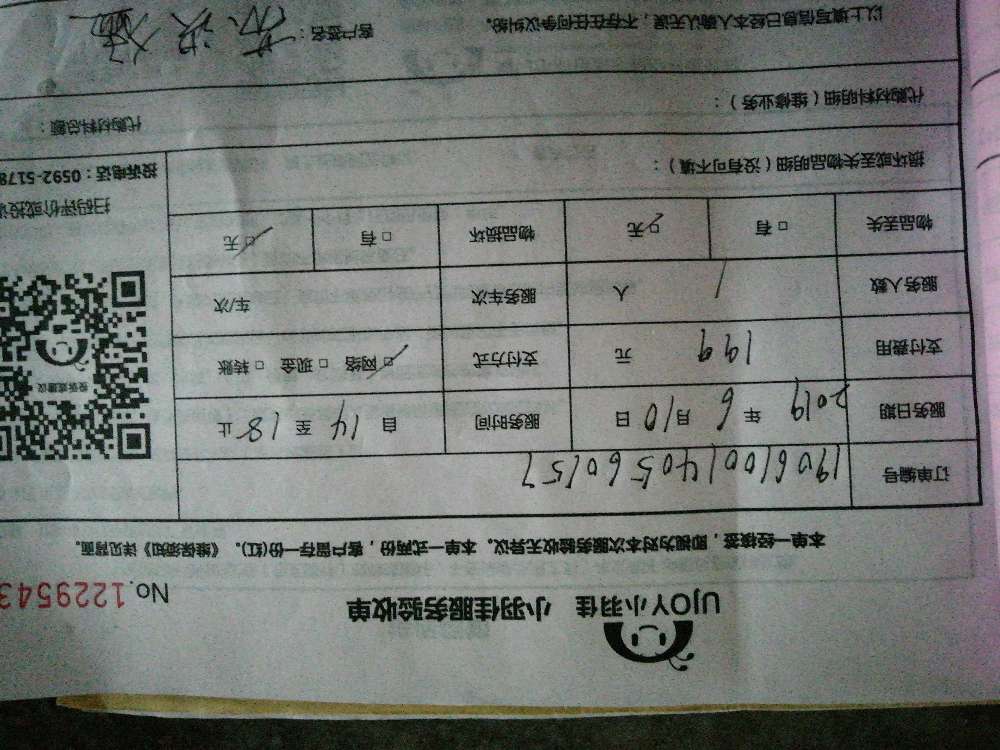 UJOY小羽佳 小羽佳服务验收单
No.1229543
本单一经核签，即视为对本次服务验收无异议。本单一式两份，客户留存一份(红)。《维保须知》详见背面。
订单编号 1906100140560157
服务日期 2019 年 6 月 10 日 服务时间 自 14 至 18 止
支付费用 199 元 支付方式 □网络 □现金 □转账
服务人数 1 人 服务车次 车/次
物品丢失 □有 □无 物品损坏 □有 □无
投诉或建议
扫码评价或投诉
投诉电话：0592-5178
损坏或丢失物品明细（没有可不填）：
代购材料明细（维修业务）： 代购材料总额：
以上填写信息已经本人确认无误，不存在任何争议纠纷。 客户签名：